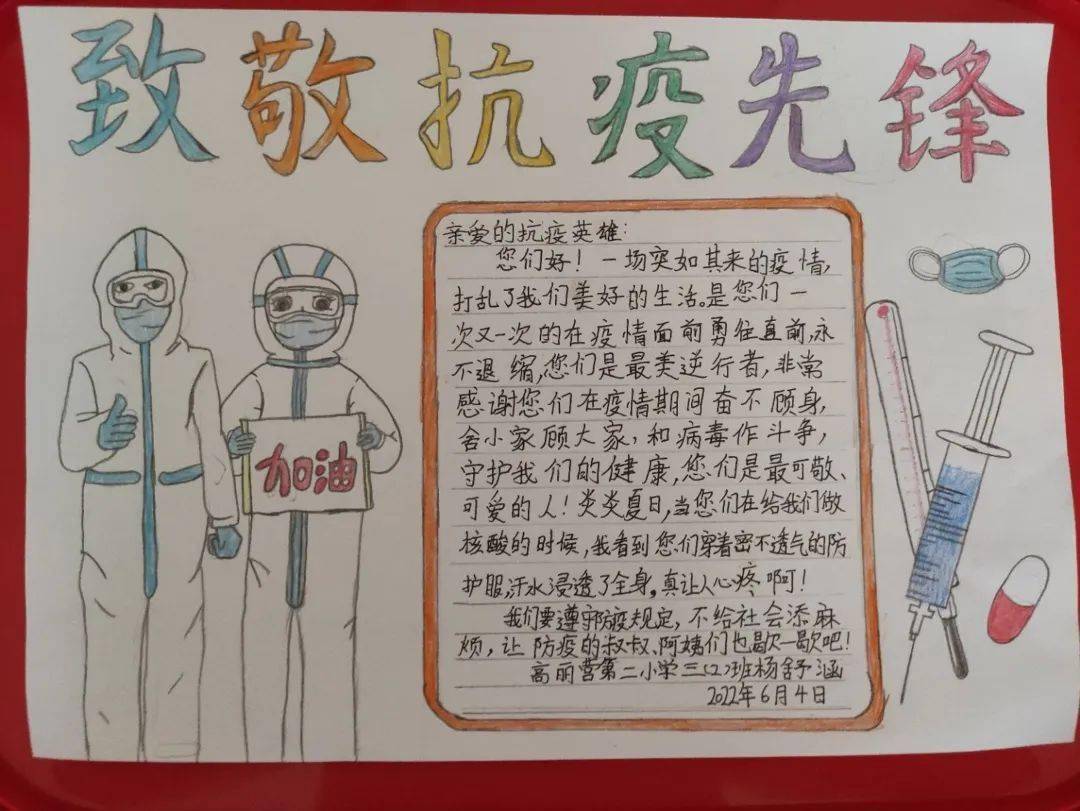 致敬抗疫先锋
亲爱的抗疫英雄:
您们好！一场突如其来的疫情,
打乱了我们美好的生活。是您们一
次又一次的在疫情面前勇往直前,永
不退缩,您们是最美逆行者,非常
感谢您们在疫情期间奋不顾身,
舍小家顾大家,和病毒作斗争,
守护我们的健康,您们是最可敬、
可爱的人！炎炎夏日,当您们在给我们做
核酸的时候,我看到您们穿着密不透气的防
护服,汗水浸透了全身。真让人心疼啊！
我们要遵守防疫规定,不给社会添麻
烦,让防疫的叔叔、阿姨们也歇一歇吧！
高丽营第二小学三(2)班杨舒涵
2022年6月4日
加油